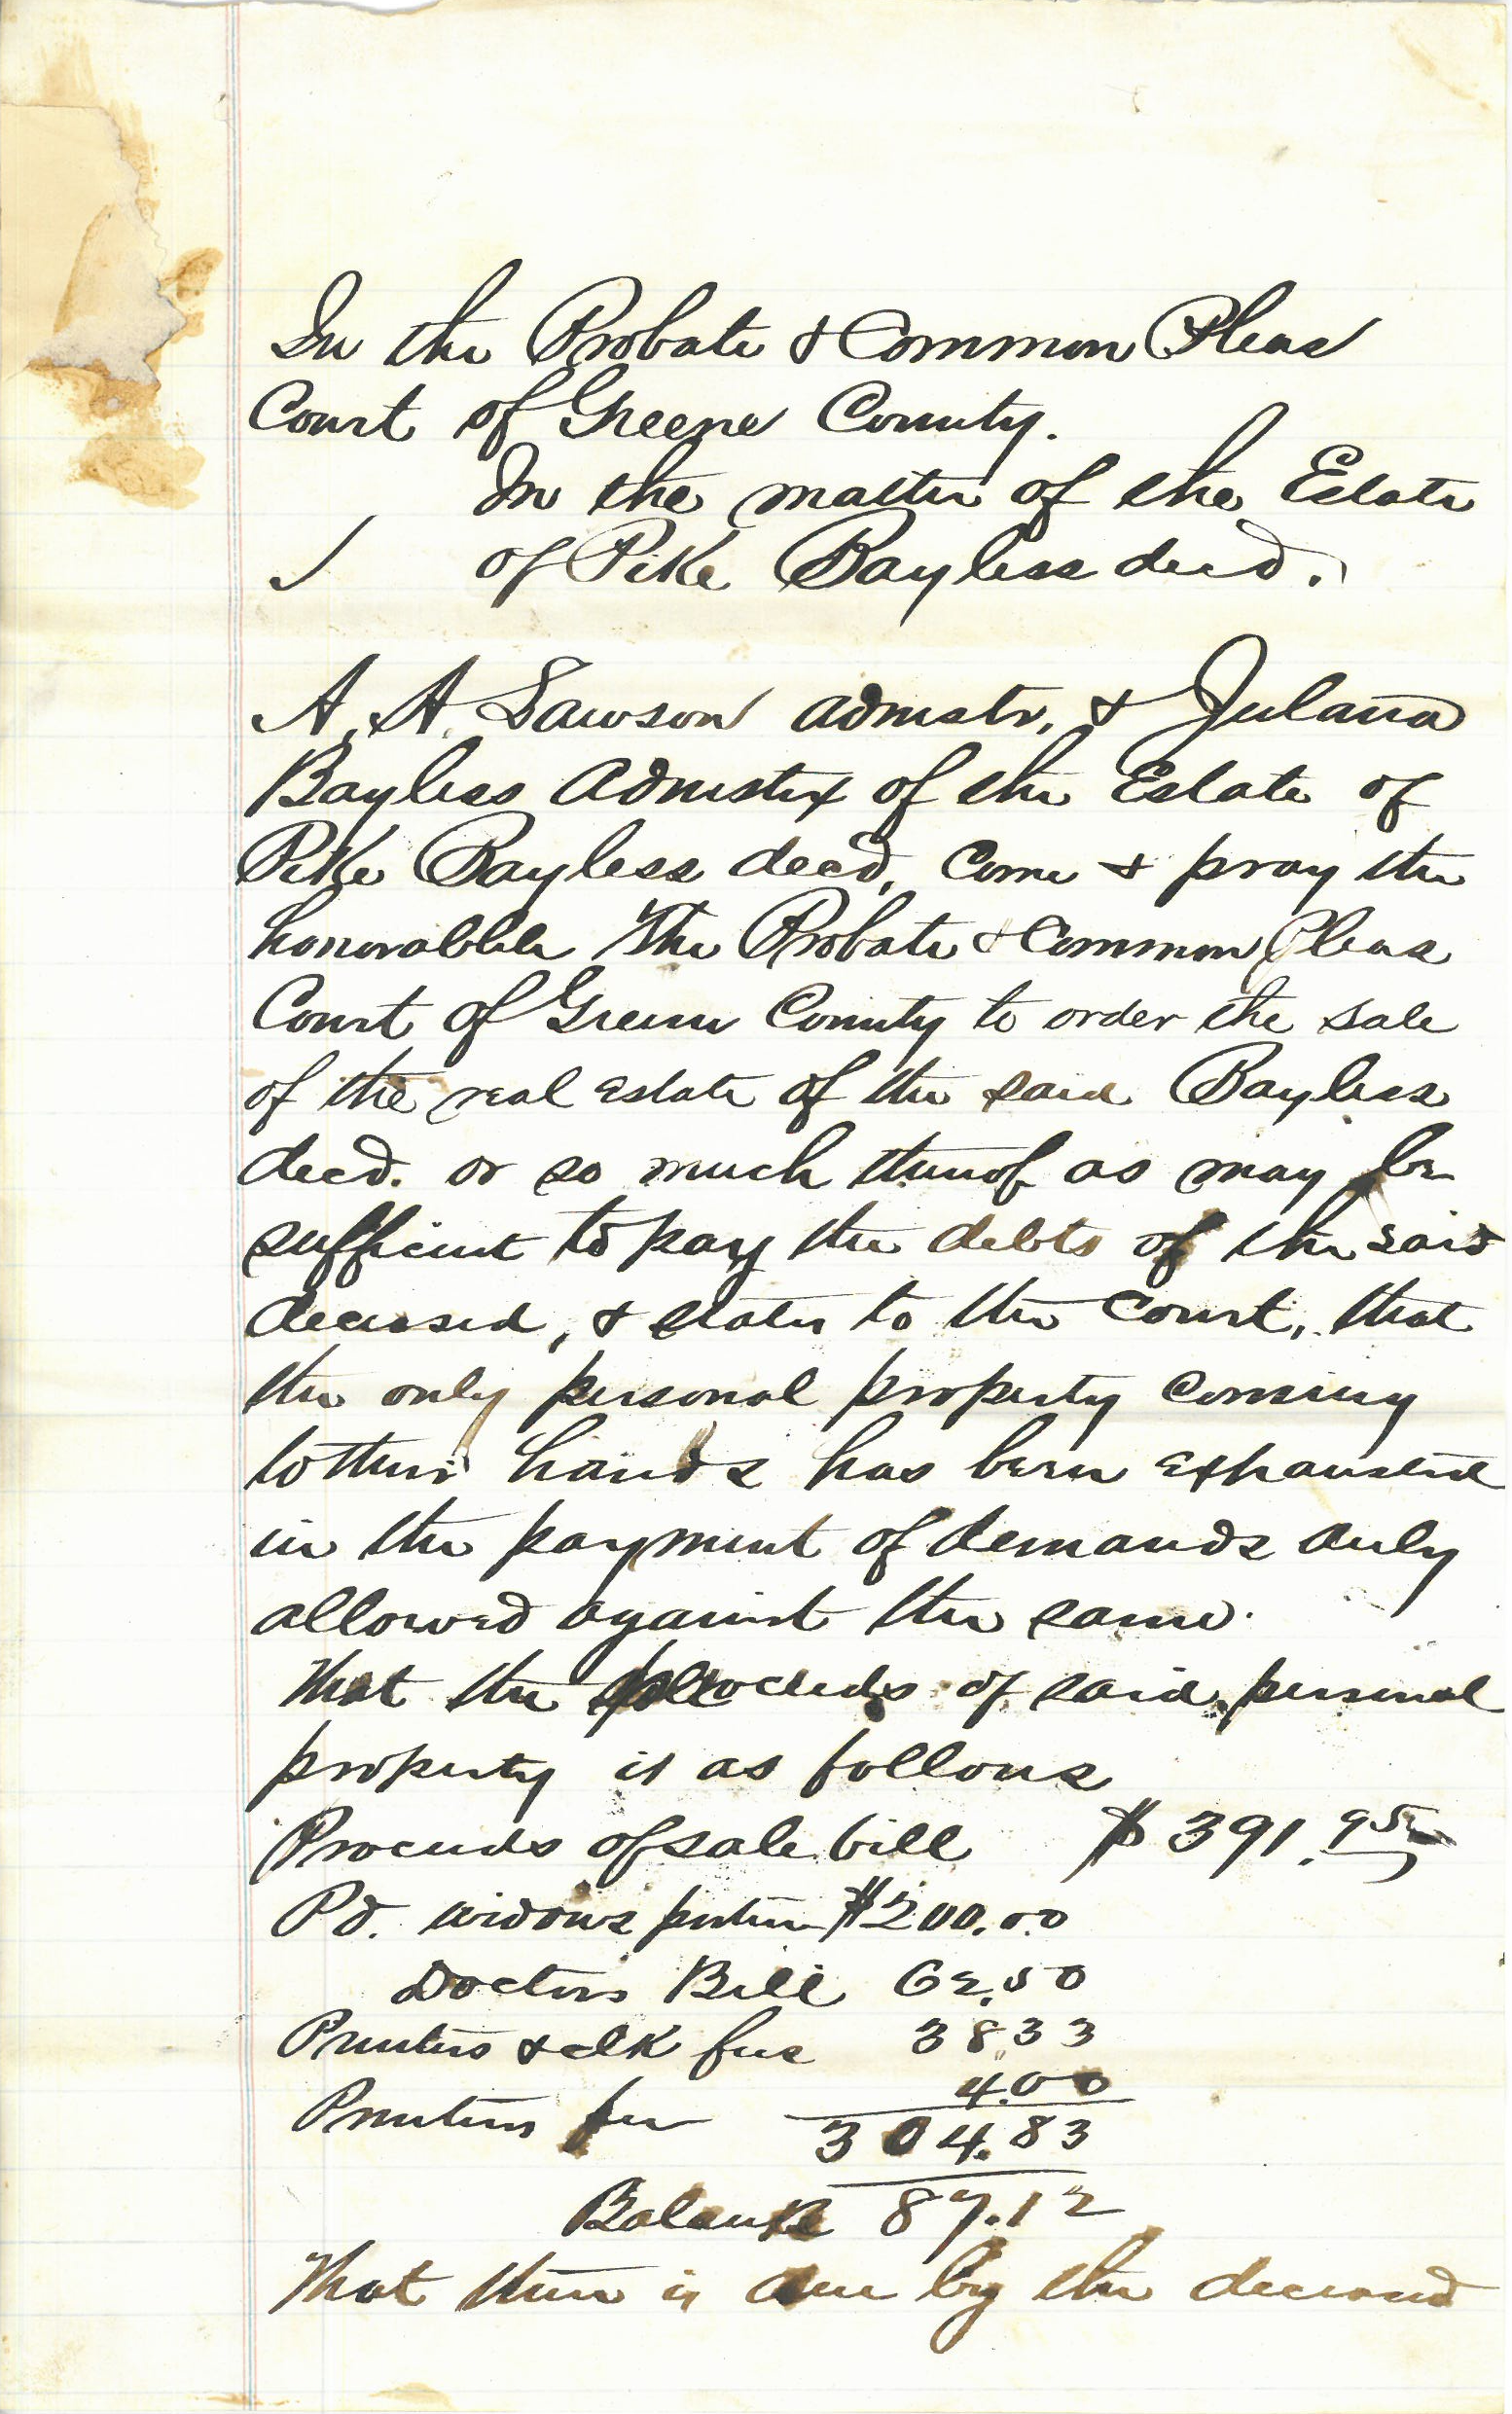 In the Probate & Common Pleas
Court of Greene County.
In the matter of the Estate
of Pike Bayless decd.
A. A. Lawson admstr. & Juliana
Bayless Admstrx of the Estate of
Pike Bayless decd, Come & pray the
honorabble The Probate & Common Pleas
Court of Greene County to order the sale
of the real estate of the said Bayless
decd. or so much thereof as may be
sufficient to pay the debts of the said
deceased, & states to the Court, that
the only personal property coming
to their hands has been exhausted
in the payment of demands duly
allowed against the same.
That the proceeds of said personal
property is as follows
Proceeds of sale bill $391.95
Pd. widows portion $200.00
Doctors Bill 62.50
Printers & clk fees 38 33
Printers fee 4.00
304.83
Balance 87.12
That there is due by the deceased